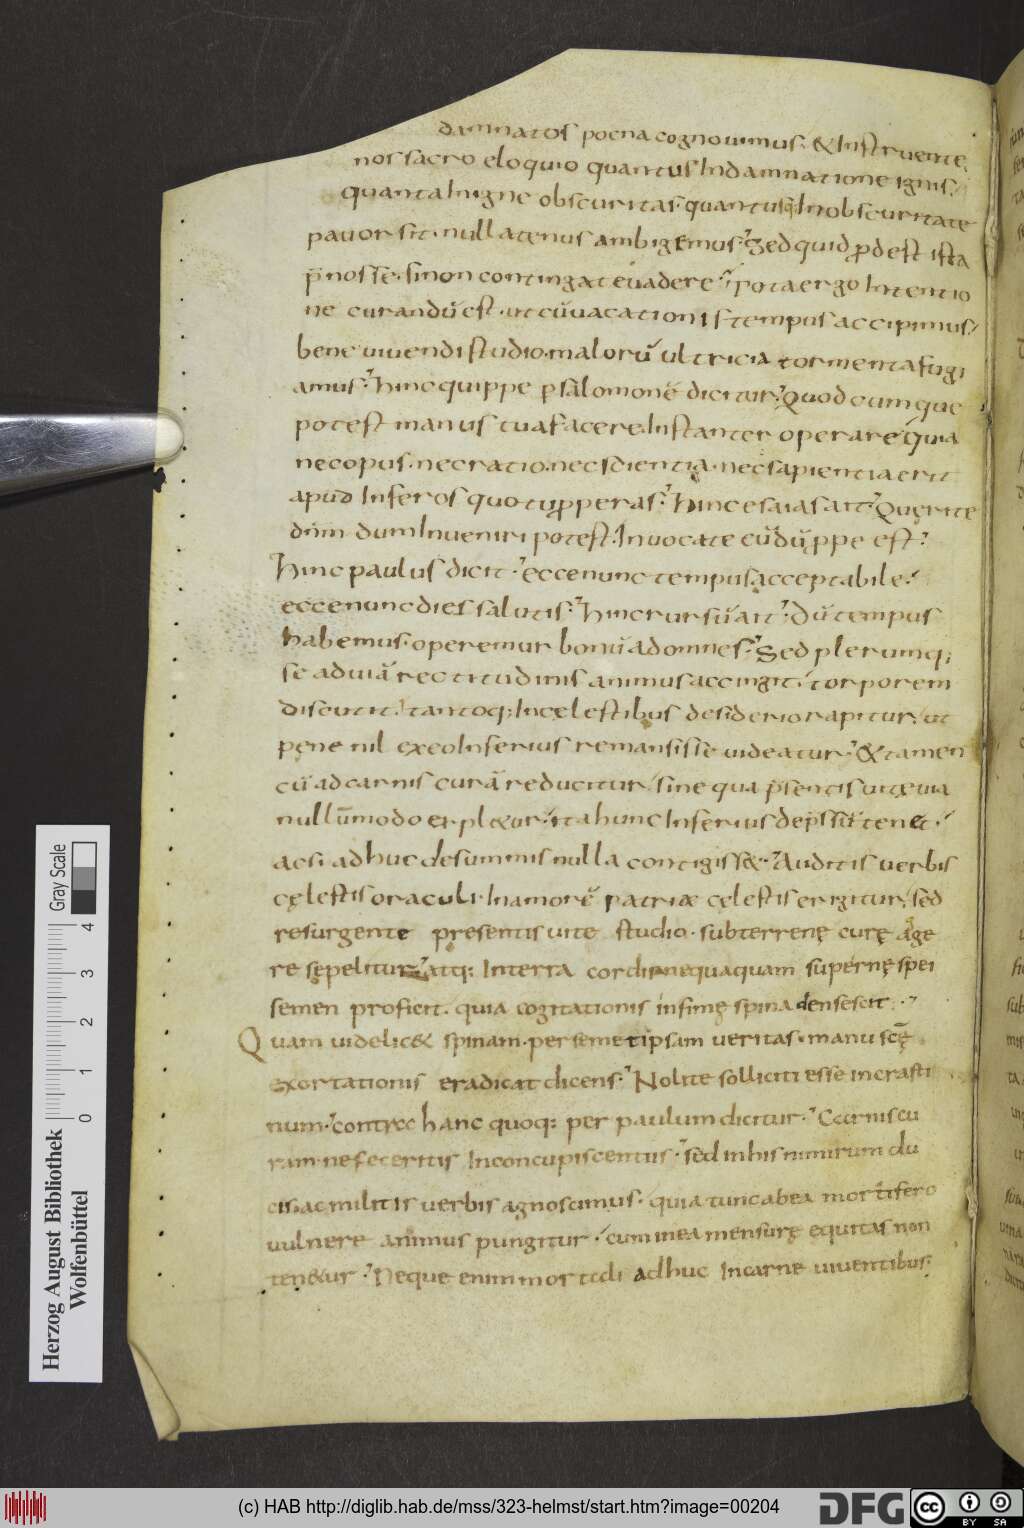 damnatos poena cognovimus. & Instruente
nos sacro eloquio quantus In damnatione ignis
quanta In igne obscuritas. quantusq In obscuritate
pavor sit. nullatenus ambigemus. Sed quid p̄dest ista
p̄nosse. si non contingat evadere. Tota ergo Intentio
ne curandū est. ut cū vacationis tempus accipimus
bene vivendi studio. malorū ultricia tormenta fugi
amus. hinc quippe p salomonē dicitur. Quodcumque
potest manus tua facere. Instanter operare. Quia
nec opus. nec ratio. nec scientia. nec sapientia erit
apud Inferos quo tu pperas. hinc esaias ait. Querite
dn̄m dum Inveniri potest. Invocate eū dū ppe est.
hinc paulus dicit. ecce nunc tempus acceptabile.
ecce nunc dies salutis. hinc rursū ait. Dū tempus
habemus. operemur bonū ad omnes. Sed plerumq;
se ad viā rectitudinis animus accingit. torporem
discutit. tantoq; In cęlestibus desiderio rapitur. ut
pęne nil ex eo Inferius remansisse videatur. & tamen
cū ad carnis curā reducitur. sine qua p̄sentis vitę via
nullūmodo expletur. ita hunc Inferius dep̄ssū tenet.
ac si adhuc de summis nulla contigiss&. Auditis verbis
cęlestis oraculi. In amorē patriæ cęlestis erigitur. sed
resurgente presentis vite studio. subterrenę curę agge
re sępelitur. atq; In terra cordis nequaquam supernę spei
semen proficit. quia cogitationis infimę spina densescit.
Quam videlic& spinam. per semetipsam veritas. manu scę̄
exortationis eradicat dicens. Nolite solliciti esse in crasti
num. contra hanc quoq; per paulum dicitur. Carnis cu
ram. ne feceritis In concupiscentiis. sed in his nimirum du
cis. ac militis verbis agnoscimus. quia tunc ab ea mortifero
vulnere animus pungitur. cum in ea mensurę equitas non
ten&ur. Neque enim mortali adhuc In carne viventibus.
Gray Scale
4
3
2
1
0
Herzog August Bibliothek
Wolfenbüttel
(c) HAB http://diglib.hab.de/mss/323-helmst/start.htm?image=00204
DFG
cc
BY SA